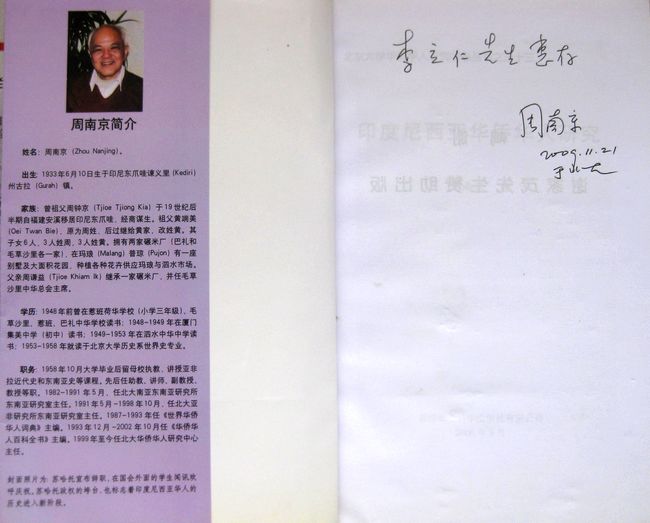 周南京简介
姓名：周南京（Zhou Nanjing）。
出生：1933年6月10日生于印尼东爪哇谏义里（Kediri）
州古拉（Gurah）镇。
家族：曾祖父周钟京（Tjioe Tjiong Kia）于19世纪后
半期自福建安溪移居印尼东爪哇，经商谋生。祖父黄端美
（Oei Twan Bie），原为周姓，后过继给黄家，改姓黄。其
子女6人，3人姓周，3人姓黄。拥有两家碾米厂（巴礼和
毛草沙里各一家），在玛琅（Malang）普琼（Pujon）有一座
别墅及大面积花园，种植各种花卉供应玛琅与泗水市场。
父亲周谦益（Tjioe Khiam Ik）继承一家碾米厂，并任毛草
沙里中华总会主席。
学历：1948年前曾在惹班荷华学校（小学三年级）、毛
草沙里、惹班、巴礼中华学校读书；1948-1949年在厦门
集美中学（初中）读书；1949-1953年在泗水中华中学读
书；1953-1958年就读于北京大学历史系世界史专业。
职务：1958年10月大学毕业后留母校执教，讲授亚非
拉近代史和东南亚史等课程。先后任助教、讲师、副教授、
教授等职。1982-1991年5月，任北大南亚东南亚研究所
东南亚研究室主任。1991年5月-1998年10月，任北大亚
非研究所东南亚研究室主任。1987-1993年任《世界华侨
华人词典》主编。1993年12月-2002年10月任《华侨华
人百科全书》主编。1999年至今任北大华侨华人研究中心
主任。
封面照片为：苏哈托宣布辞职，在国会外面的学生闻讯欢
呼庆祝。苏哈托政权的垮台，也标志着印度尼西亚华人的
历史进入新阶段。
李立仁先生惠存
周南京
2009.11.21
于北大